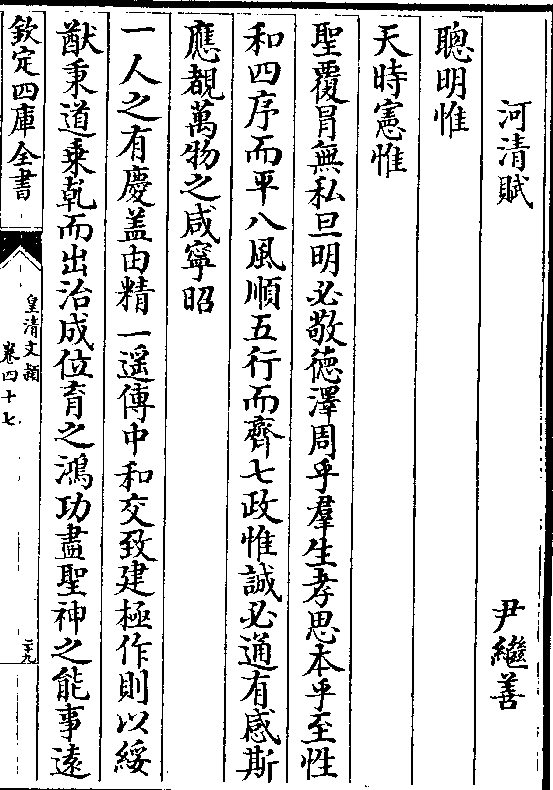 河清賦
尹繼善
聰明惟
天時憲惟
聖覆冐無私旦明必敬德澤周乎羣生孝思本乎至性
和四序而平八風順五行而齊七政惟誠必通有感斯
應覩萬物之咸寧昭
一人之有慶盖由精一遥傳中和交致建極作則以綏
猷秉道乗乾而出治成位育之鴻功盡聖神之能事遠
欽定四庫全書
皇清文頴
卷四十七
二十九